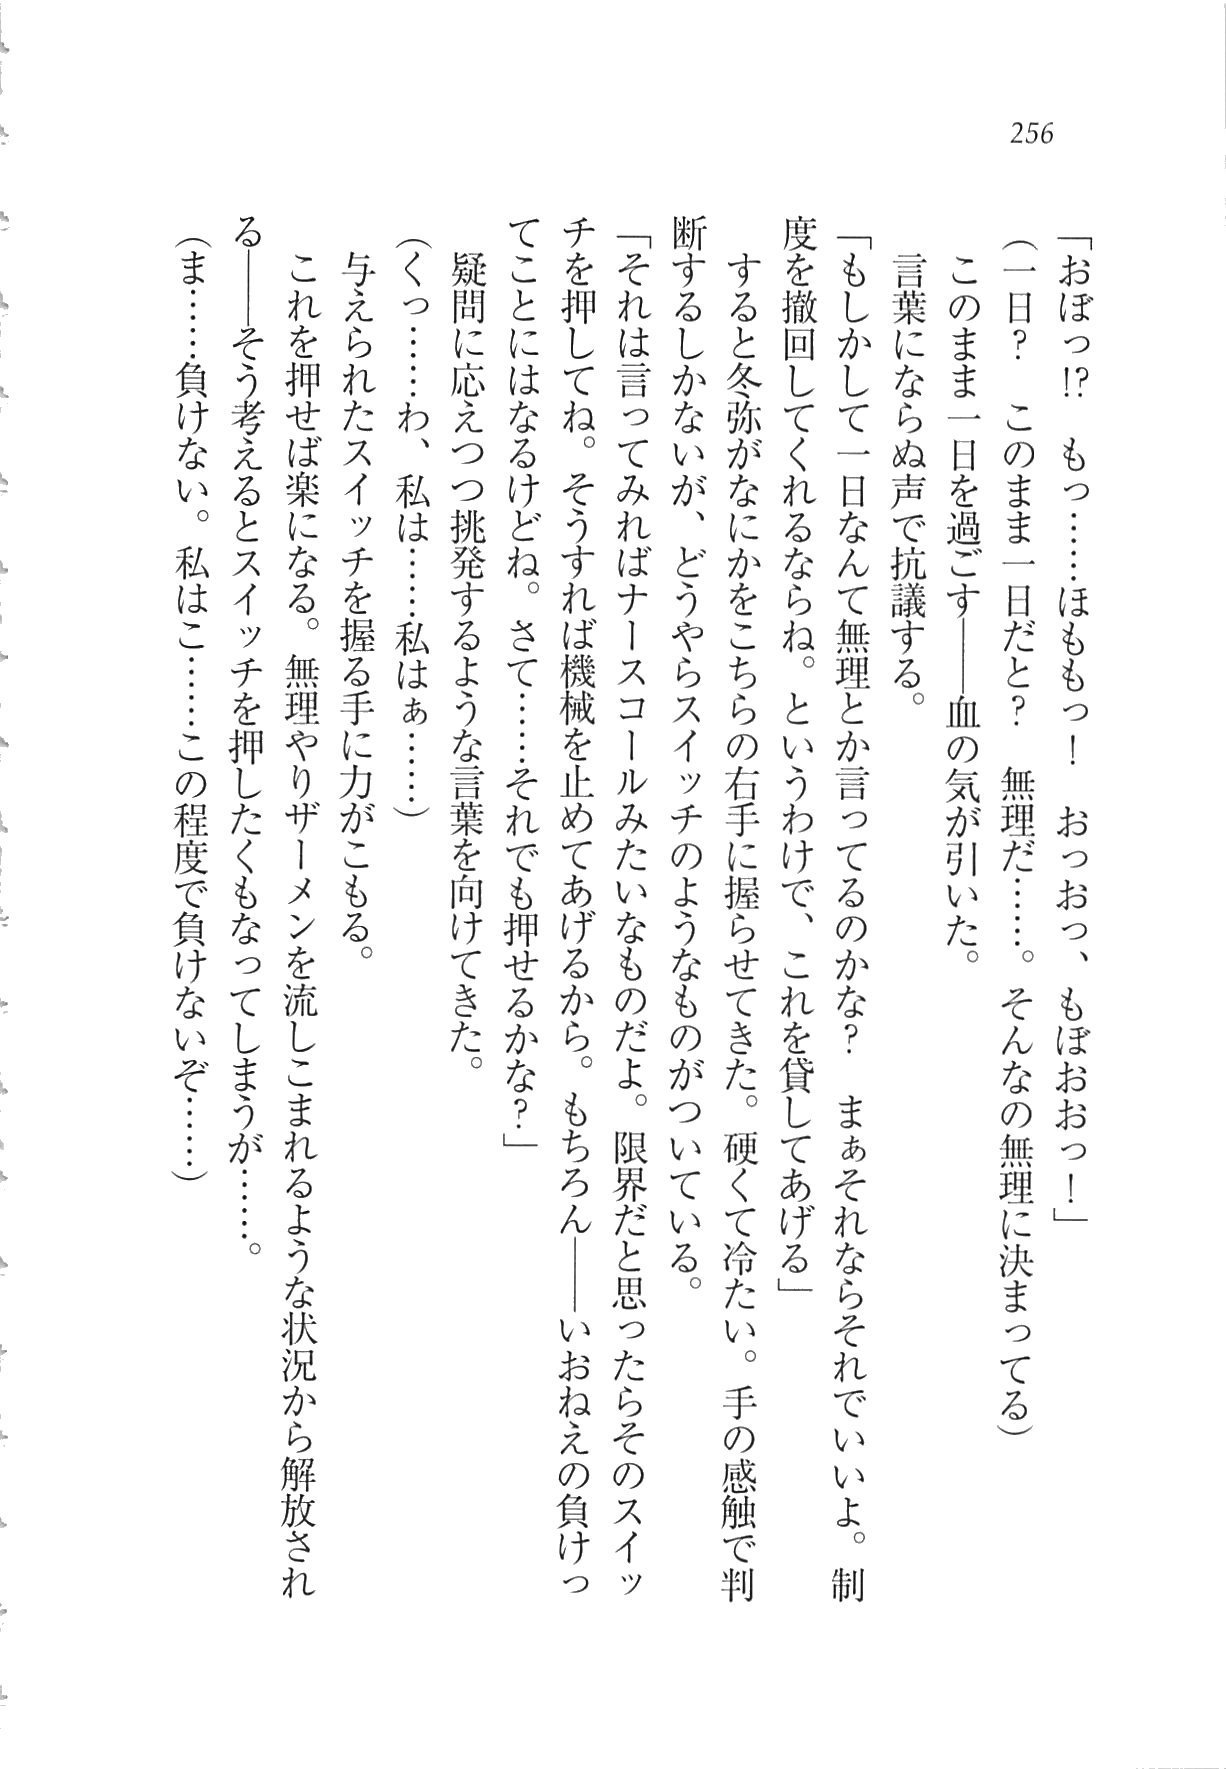 256
「おぼっ!?　もっ……ほももっ！　おっおっ、もぼおおっ！」
（一日？　このまま一日だと？　無理だ……。そんなの無理に決まってる）
このまま一日を過ごす――血の気が引いた。
言葉にならぬ声で抗議する。
「もしかして一日なんて無理とか言ってるのかな？　まぁそれならそれでいいよ。制
度を撤回してくれるならね。というわけで、これを貸してあげる」
すると冬弥がなにかをこちらの右手に握らせてきた。硬くて冷たい。手の感触で判
断するしかないが、どうやらスイッチのようなものがついている。
「それは言ってみればナースコールみたいなものだよ。限界だと思ったらそのスイッ
チを押してね。そうすれば機械を止めてあげるから。もちろん――いおねえの負けっ
てことにはなるけどね。さて……それでも押せるかな？」
疑問に応えつつ挑発するような言葉を向けてきた。
（くっ……わ、私は……私はぁ……）
与えられたスイッチを握る手に力がこもる。
これを押せば楽になる。無理やりザーメンを流しこまれるような状況から解放され
る――そう考えるとスイッチを押したくもなってしまうが……。
（ま……負けない。私はこ……この程度で負けないぞ……）